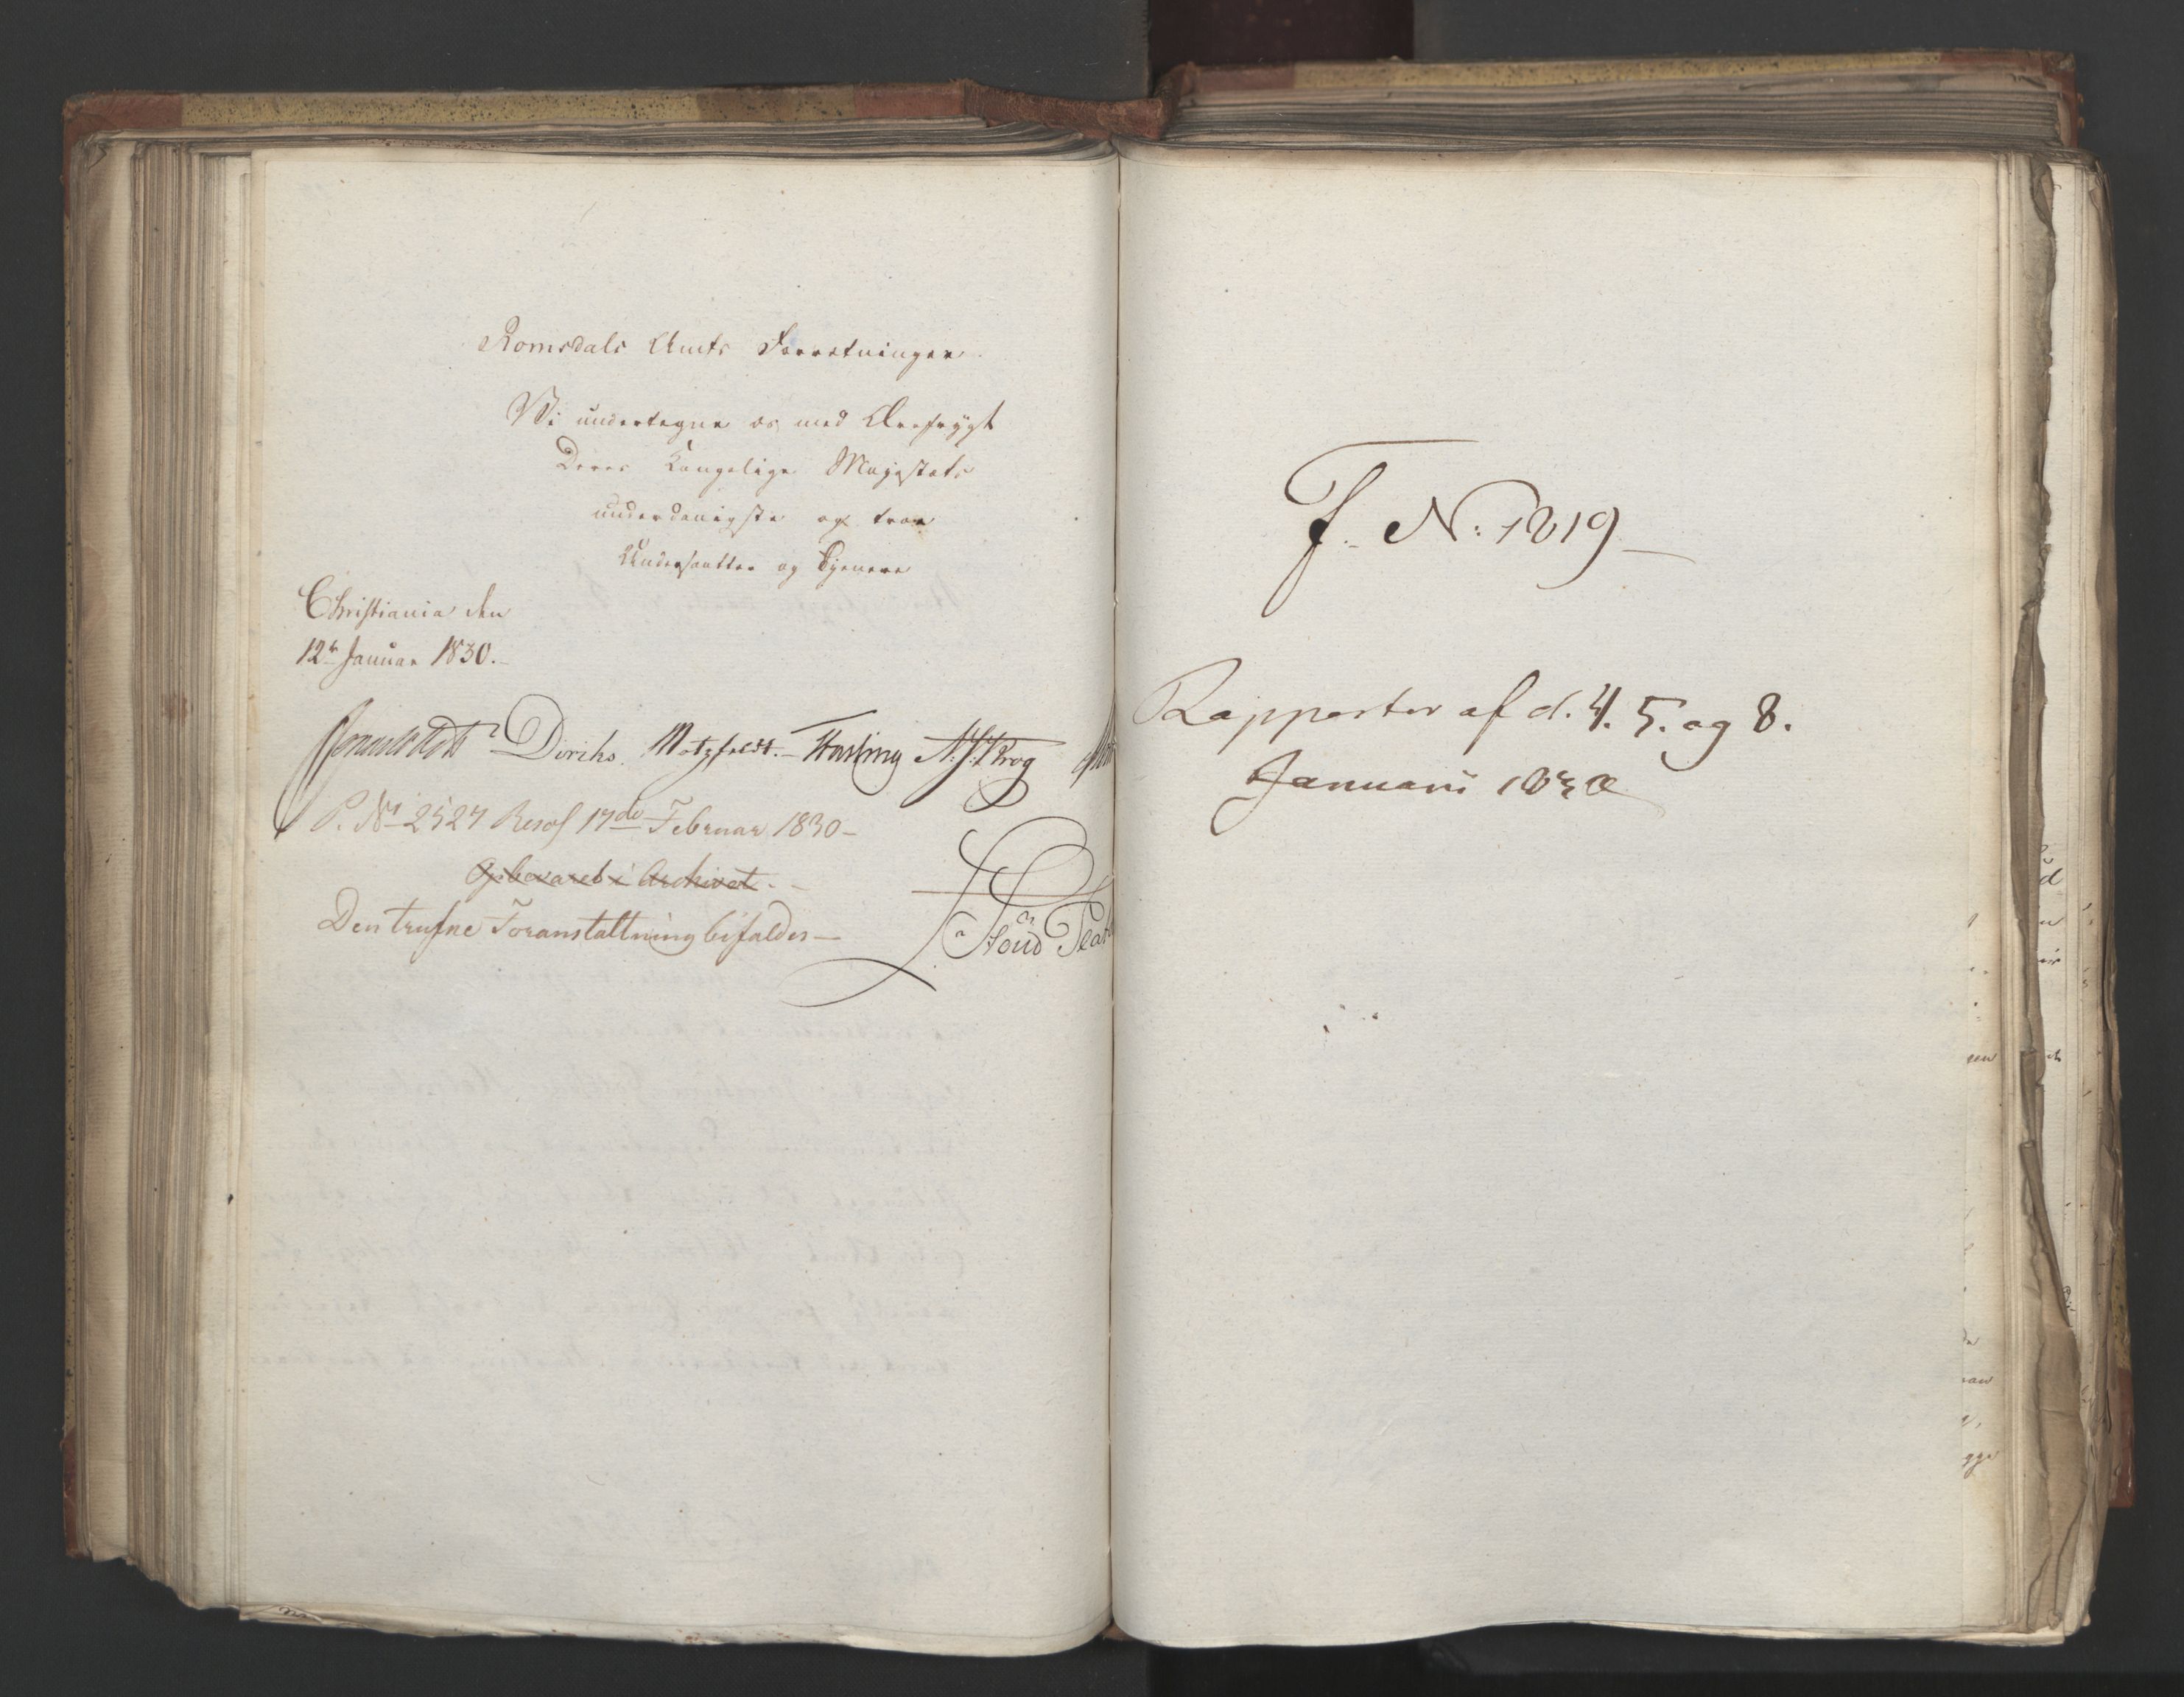 Romsdals Amts Forretninger.
Vi undertegne os med Ærefrygt
Deres Kongelige Majestæts
underdanigste og troe
Undersaatter og Tjenere
Christiania den
12te Januar 1830.
Diriks. Motzfeldt. Fasting N. J. Krog
P. No 2527 Resol 17de Februar 1830 –
Opbevaret i Archivet. –
Den trufne Foranstaltning bifaldes –
F. N: 1819
Rapporter af d. 4. 5. og 8.
Januari 1830